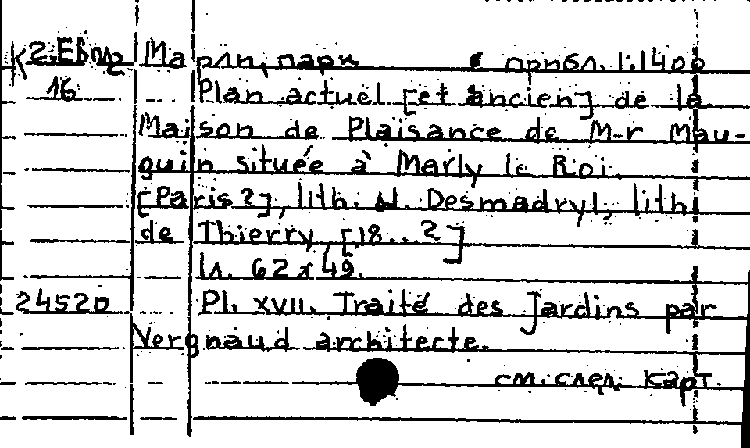 К 2.Евпg Марли, парк прибл. 1:1400
16 Plan actuel [et ancien] de la
Maison de Plaisance de M-r Mau-
guin située à Marly le Roi.
[Paris?], lith. N. Desmadryl, lith.
de Thierry, [18..?]
1л. 62x49.
24520 Pl. XVII. Traité des Jardins par
Vergnaud architecte.
см. след. карт.